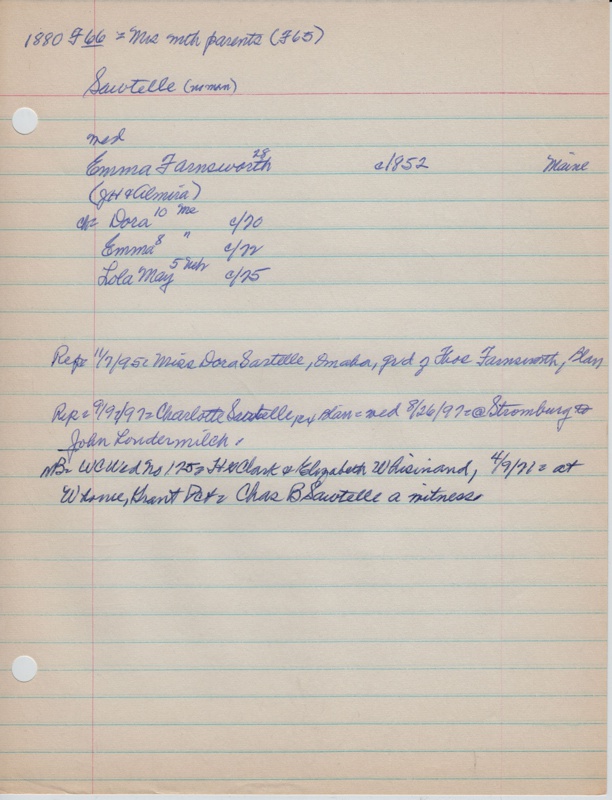 1880 F66 = Mrs with parents (F65)
Sawtelle (no man)
md
Emma Farnsworth 28 c/1852 Maine
(JH & Almira)
ch= Dora 10 Me c/70
Emma 8 " c/72
Lola May 5 Neb c/75
Rep= 11/7/95= Miss Dora Sartelle, Omaha, gr/d of Thos Farnsworth, Blan
Rep= 9/9/97= Charlotte Sawtelle, Blan= wed 8/26/97= @ Stromburg to
John Loudermilch.
NB= WC Wed No 125= H W Clark & Elizabeth Whisinand, 4/9/71= at
W home, Grant Pct= Chas B Sawtelle a witness